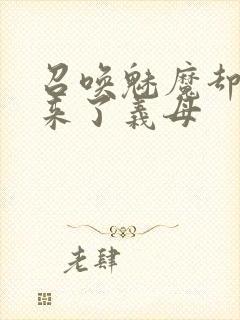 召唤魅魔却
来了義母
老肆